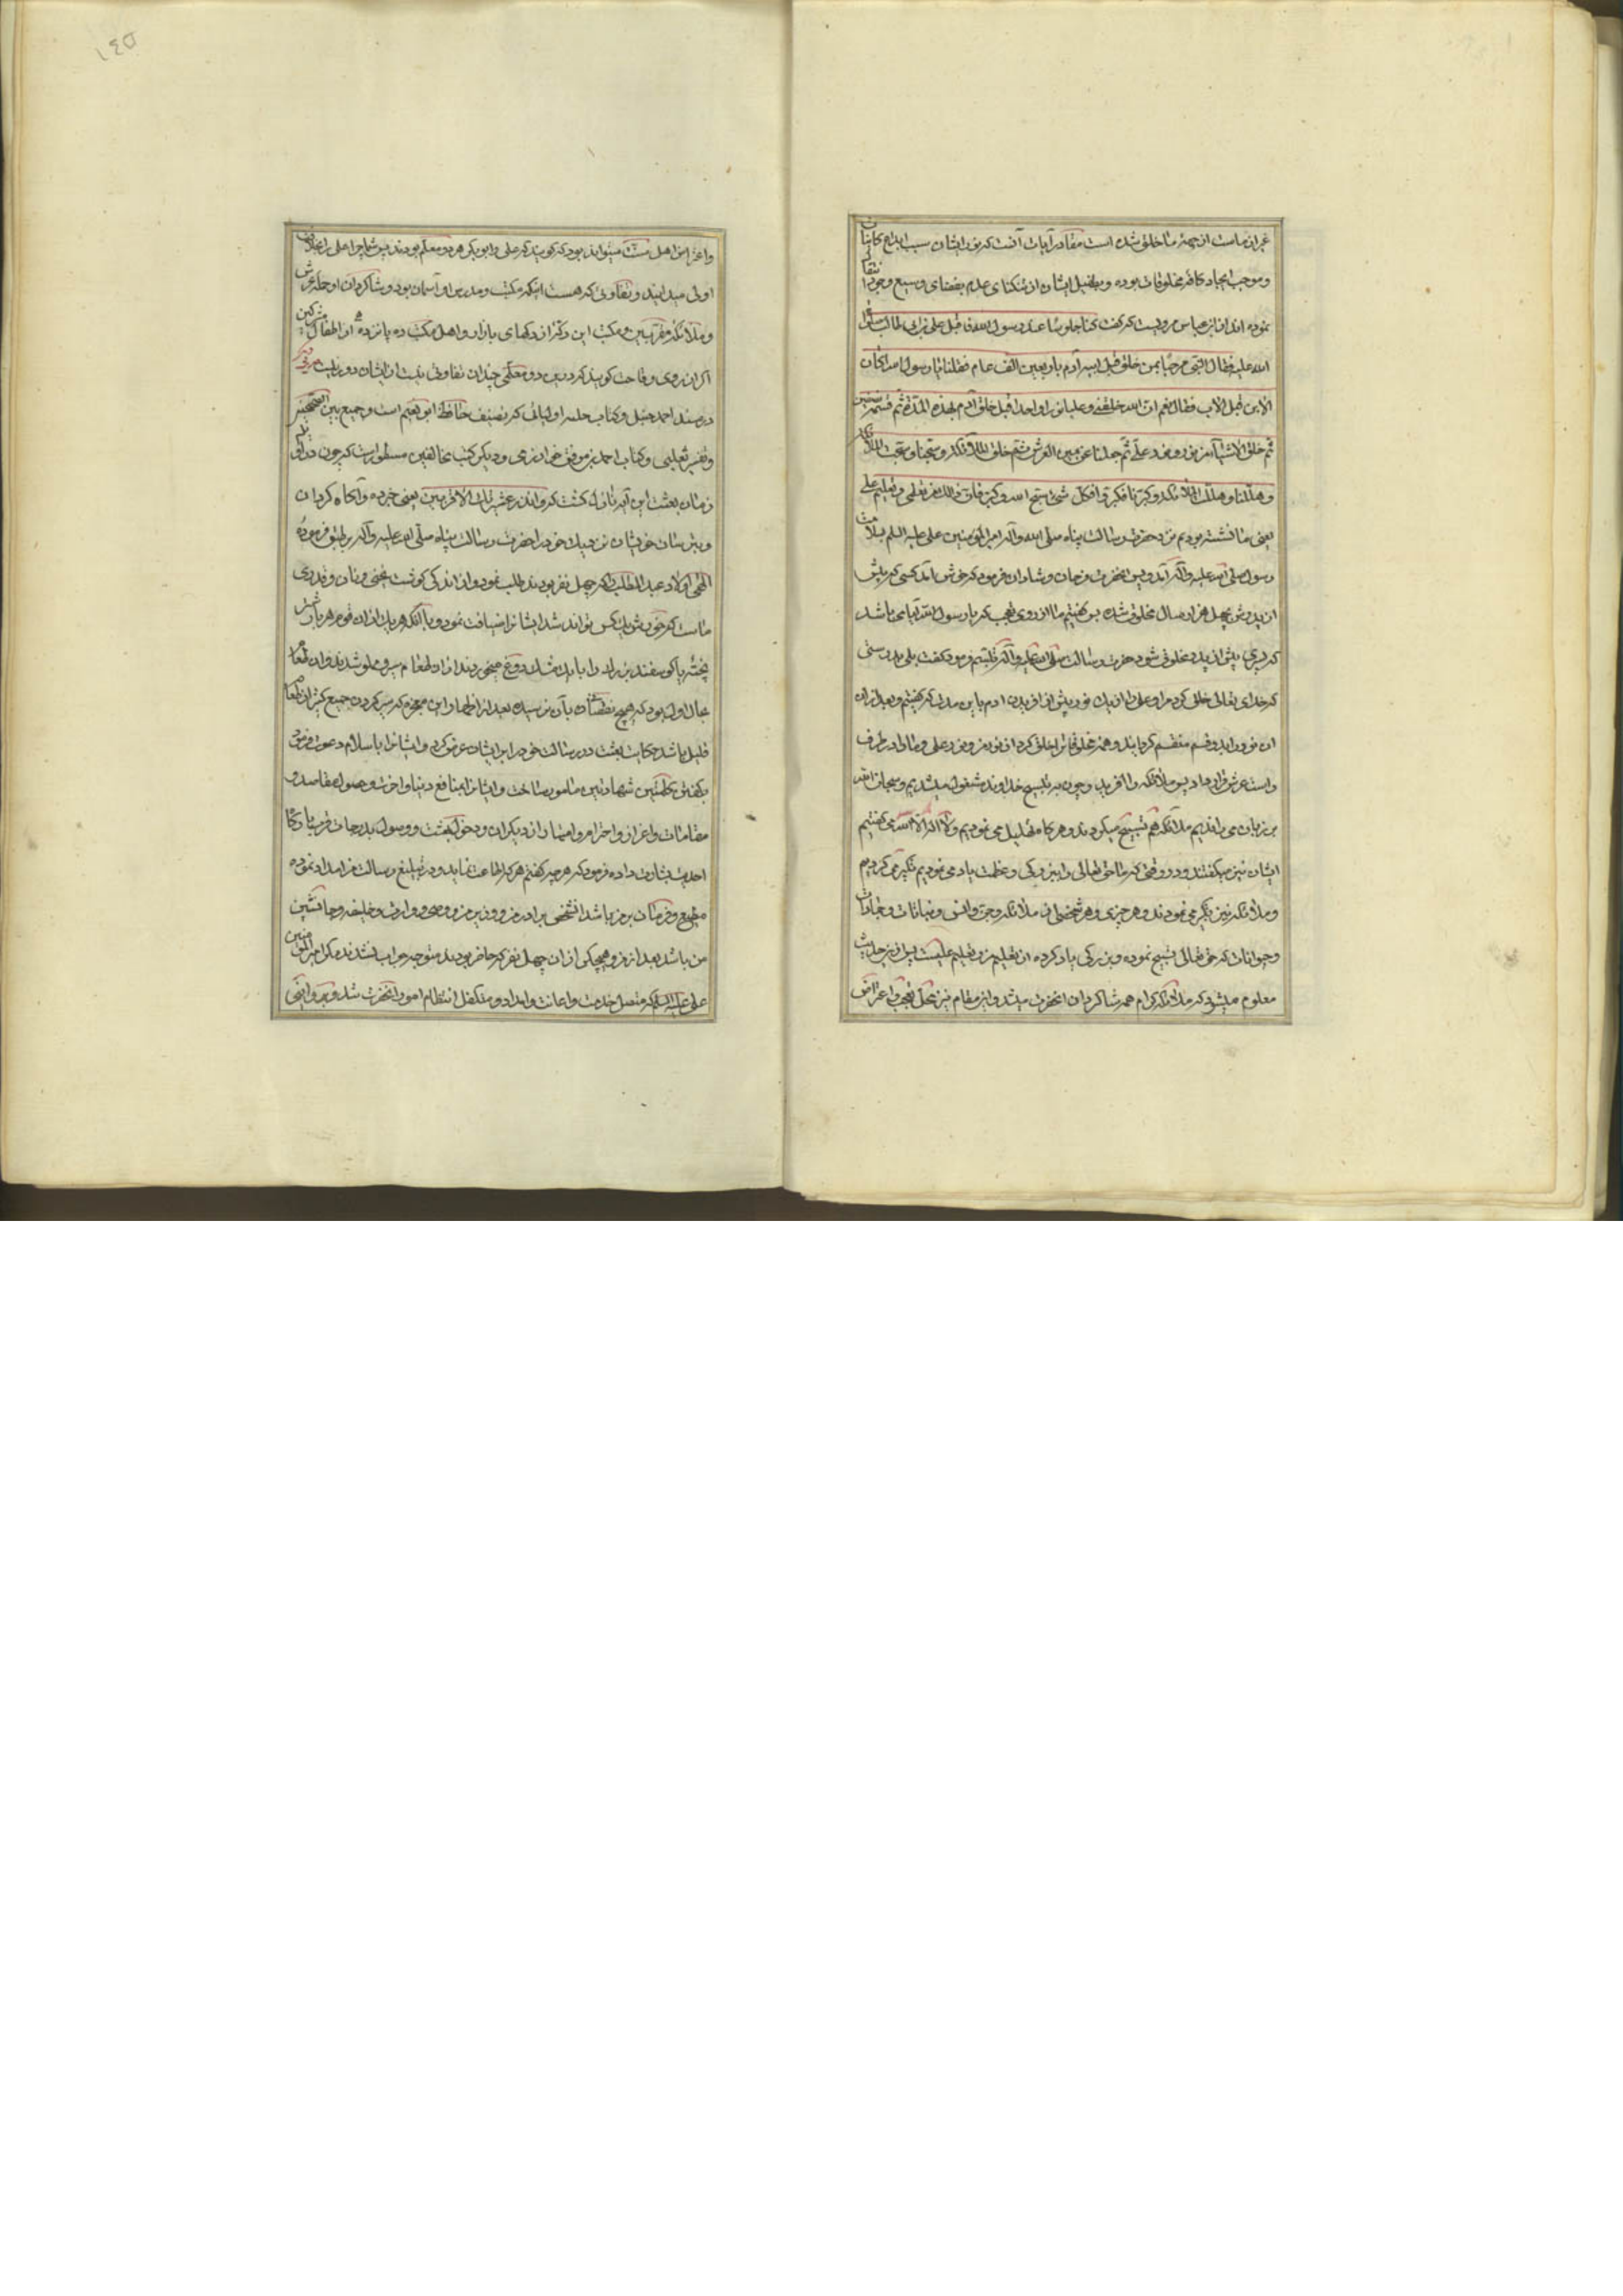 غیر از ماست از جهة ما خلق شده است مفاد آیات آنست که نور ایشان سبب ابداع کاینات
و موجب ایجاد کافه مخلوقات بوده و بطفیل ایشان از تنکنای عدم بفضای وسیع وجود انتقال
نموده اند از ابن عباس مرویست که گفت کنا جلوسا عند رسول الله فاقبل علی بن ابی طالب سلام
الله علیه فقال النبی مرحبا بمن خلق قبل ابیه آدم باربعین الف عام فقلنا یا رسول الله اکان
الابن قبل الاب فقال نعم ان الله خلقنی و علیا نورا واحدا قبل خلق آدم بهذه المدة ثم قسمه نصفین
ثم خلق الاشیاء من نوری و نور علی ثم جعلنا عن یمین العرش ثم خلق الملائکة و سبحنا و سبحت الملائکة
و هللنا و هللت الملائکة و کبرنا فکبروا فکل شئ سبح الله و کبره فان ذلک من تعلیمی و تعلیم علی
یعنی ما نشسته بودیم نزد حضرت رسالت پناه صلی الله و آله امیر المؤمنین علی علیه السلم بملازمت
رسول صلی الله علیه و آله آمد و پس انحضرت فرحان و شادان فرمود که خوش آمد کسی که پیش
از پدرش بچهل هزار سال مخلوق شده پس کفتیم ما از روی تعجب که یا رسول الله آیا می باشد
که پسری پیش از پدر مخلوق شود حضرت رسالت صلی الله علیه و آله فرمود گفت بلی بدرستی
که خدای تعالی خلق کرد مرا و علی را از یک نور پیش از آفریدن آدم باین مدت که کفتیم و بعد از ان
ان نور را بدو قسم منقسم کردانید و همه مخلوقات را خلق کرد از نور من و نور علی و ما را در طرف
راست عرش قرار داد پس ملائکه را آفرید و چون به تسبیح خداوند مشغول میشدیم و سبحان الله
بر زبان می راندیم ملائکه هم تسبیح میکردند و هر کاه تهلیل می نمودیم و لا اله الا الله می کفتیم
ایشان نیز میکفتند و در وقتی که ما حق تعالی را ببزرکی و عظمت یاد می نمودیم تکبیر می کردیم
و ملائکه نیز تکبیر می نمودند و هر چیزی و هر شخصی از ملائکه و جن و انس و نباتات و جمادات
و حیوانات که حق تعالی تسبیح نموده و ببزرکی یاد کرده از تعلیم من و تعلیم علیست پس از این حدیث
معلوم میشود که ملائکه کرام همه شاکردان انحضرت میشد و این مقام نیز محل تعجب و اعتراض
۱۴۵
و اعتراض اهل سنت میتواند بود که گویند که علی و ابو بکر هر دو معلم بودند پس شما چرا علی را بخلافت
اولی میدانید و تفاوتی که هست اینکه مکتب و مدرس او آسمان بود و شاکردان او حمله عرش
و ملائکه مقربین و مکتب این دکتر از دکهای بازار و اهل مکتب ده پانزده از اطفال مشرکین
اکر از روی وقاحت کویند که در بین دو معلمی چندان تفاوتی نیست از ایشان دور نیست
در مسند احمد حنبل و کتاب حلیه اولیاء که تصنیف حافظ ابو نعیم است و جمع بین الصحیحین
و تفسیر ثعلبی و کتاب احمد بن موفق خوارزمی و دیکر کتب مخالفین مسطور است که چون در اول
زمان بعثت این آیه نازل کشت که و انذر عشیرتک الاقربین یعنی خبر ده و آکاه کردان
و بترسان خویشان نزدیک خود را حضرت رسالت پناه صلی الله علیه و آله بر طبق فرموده
الهی اولاد عبد المطلب را که چهل نفر بودند طلب نمود و از اندکی کوشت پختی و نان و قدری
ماست که خورش یک کس تواند شد ایشانرا ضیافت نمود و با آنکه هر یک از ان قوم هر بار شتر
پخته یا کوسفند بزرک را با یک مشک دوغ میخوردند از ان طعام سیر و مملو شدند و ان طعام
بحال اول بود که هیچ نقصان بآن نرسیده بعد از اظهار این معجزه که سیر کردن جمع کثیر از طعام
قلیل باشد حکایت بعثت و رسالت خود را بر ایشان عرض کرده و ایشانرا باسلام دعوت فرمود
بکفتن کلمتین شهادتین مامور ساخت و ایشانرا بمنافع دنیا و اخرت و حصول مقاصد و
مقامات و اعزاز و احترام و امتیاز از دیکران و دخول بهشت و وصول بدرجات قرب یارکاه
احدیت بشارت داده فرمود که هر چه کفتم هر که اطاعت نماید و در تبلیغ رسالت مرا امداد نموده
مطیع و فرمان بر من باشد آنشخص برادر من و وزیر من و وصی و وارث و خلیفه و جانشین
من باشد بعد از من و هیچکس از ان چهل نفر که حاضر بودند متوجه جواب نشدند مکر امیر المؤمنین
علی علیه السلام که متصل خدمت و اعانت و امداد و متکفل انتظام امور انحضرت شد و بروایتی